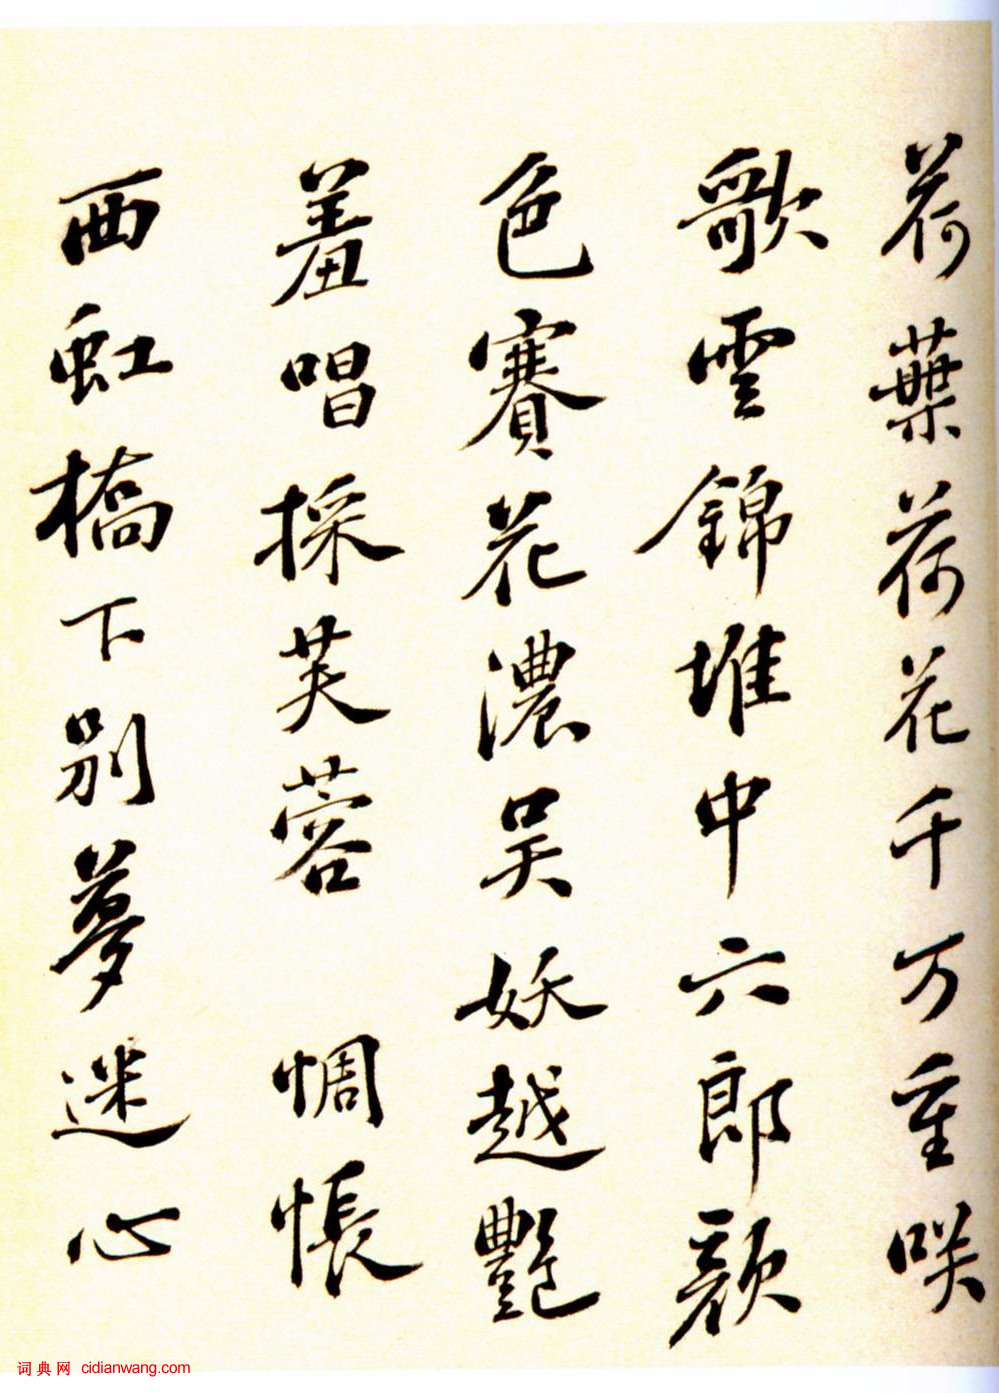 荷葉荷花千万重咲
歌雲錦堆中六郎顔
色賽花濃吴妖越艷
羞唱採芙蓉 惆悵
西虹橋下别夢迷心
词典网 cidianwang.com